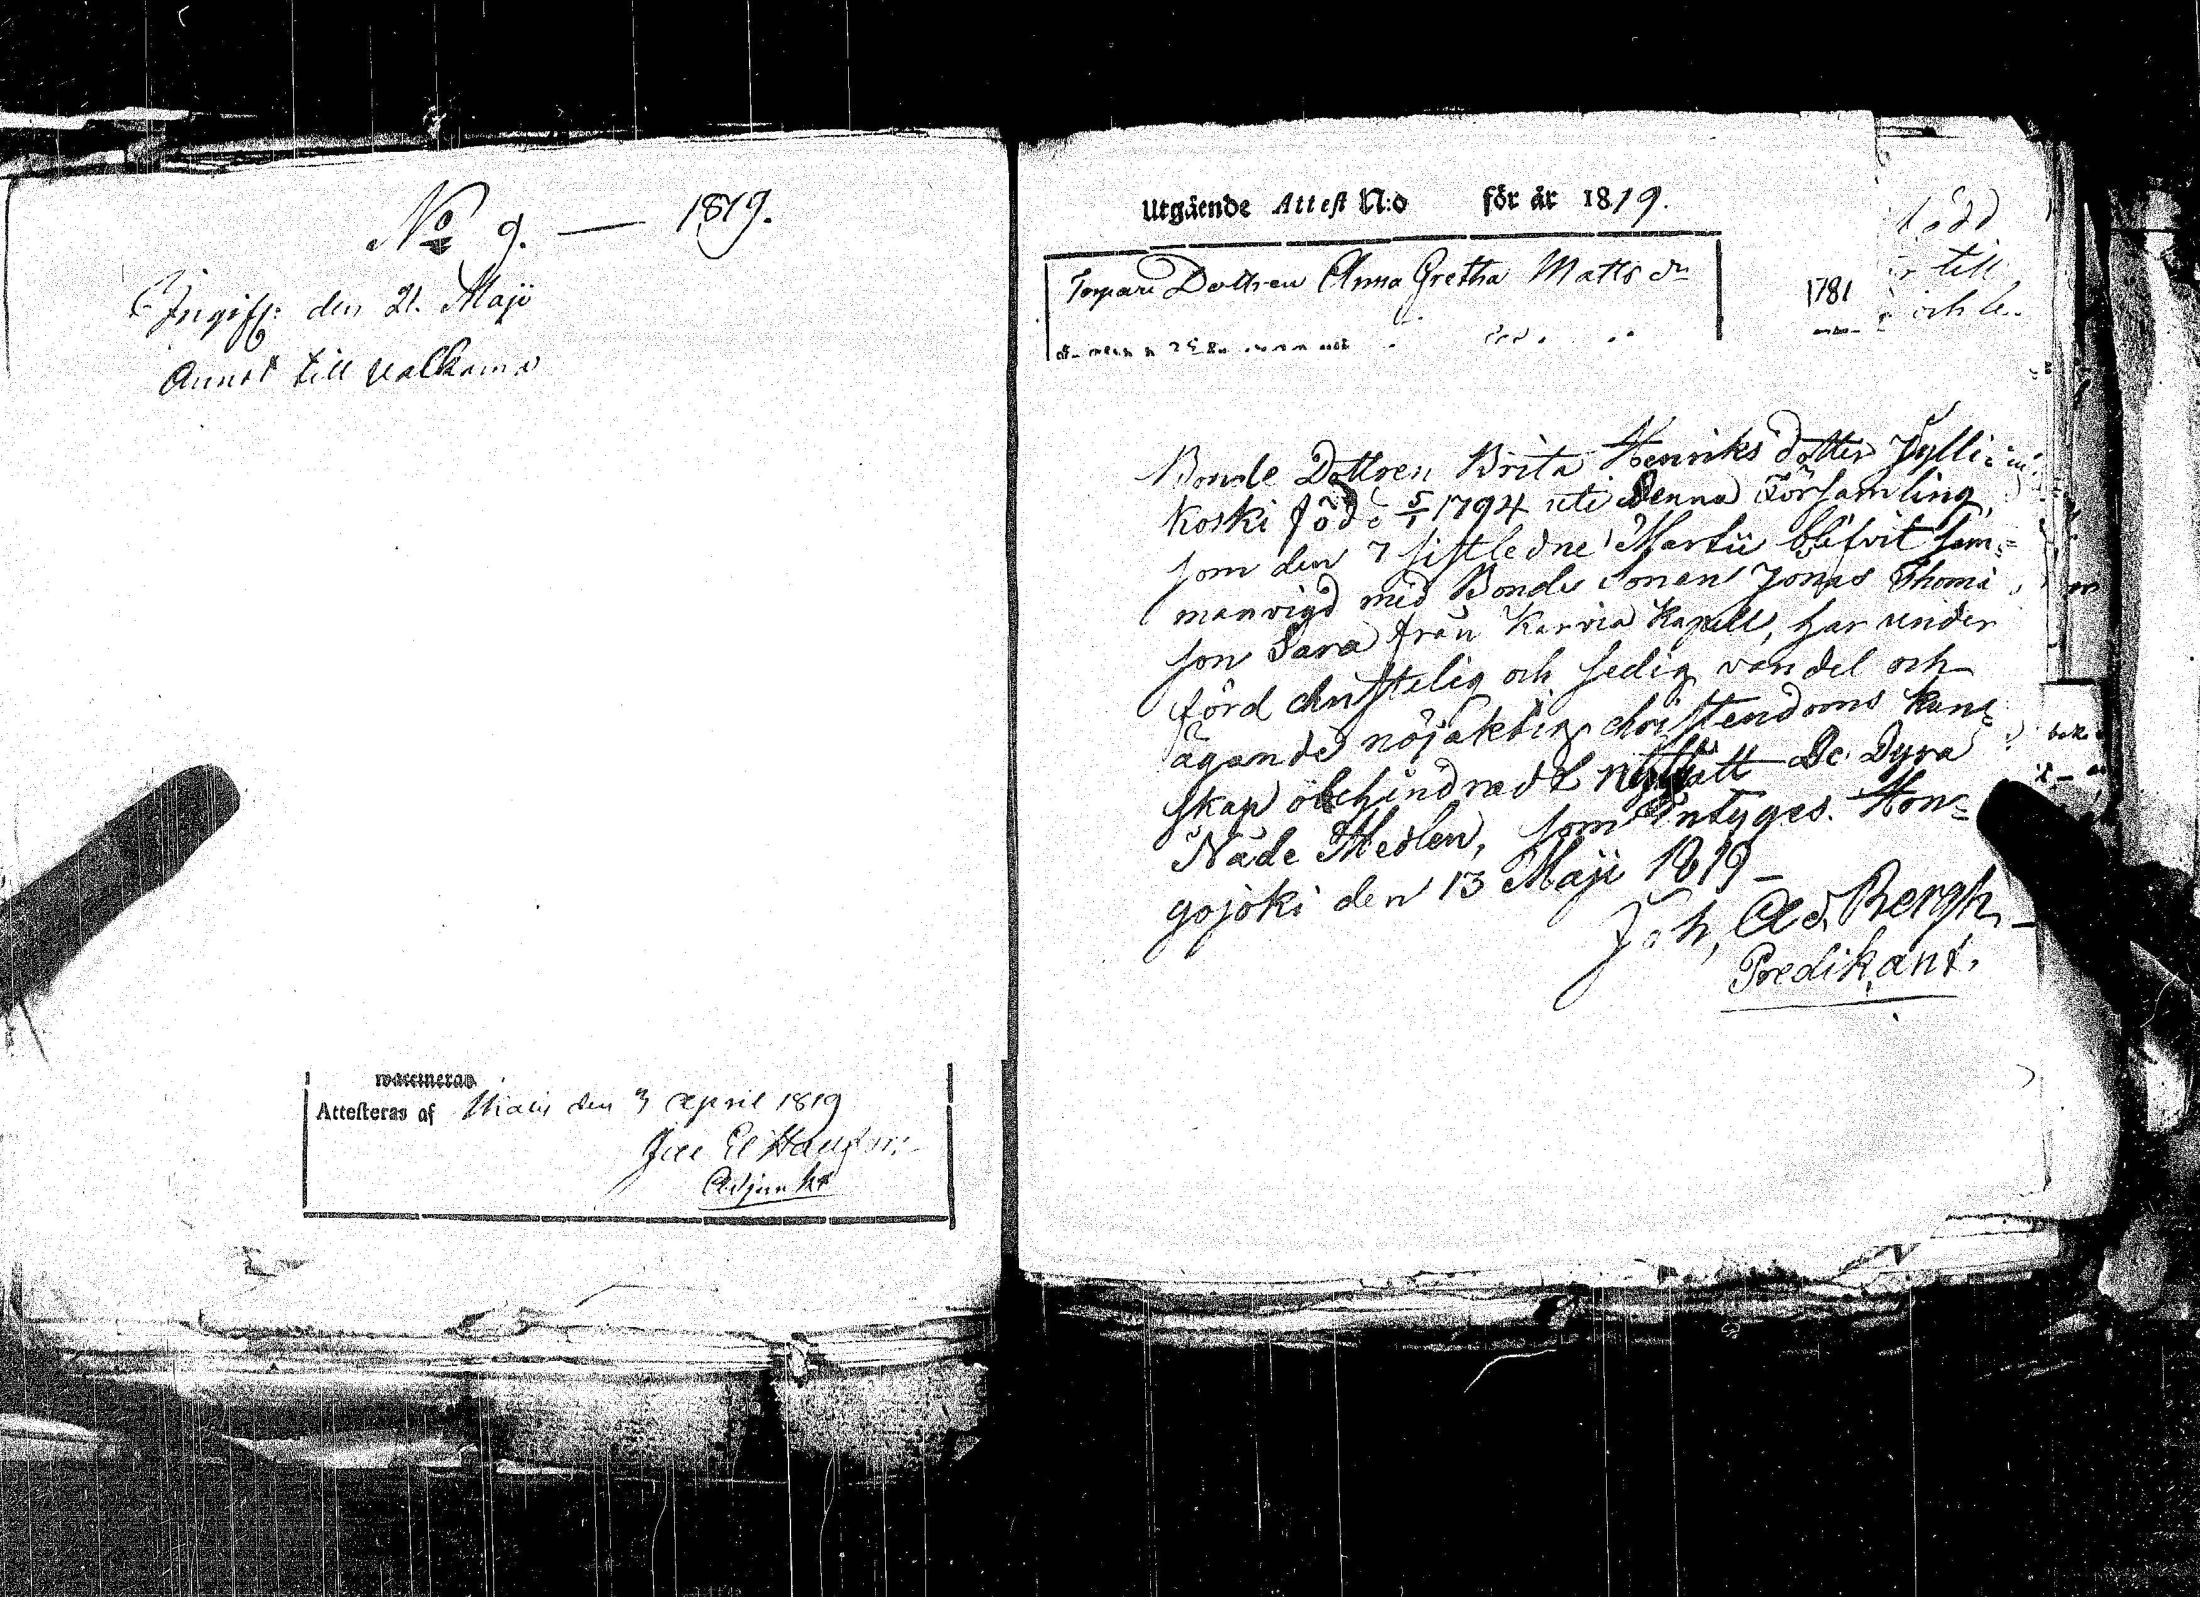 No 9. — 1819.
Ingiff: den 21. Maji
till
waccinerad
Attesteras af den 3 April 1819
Jac El
Adjunkt
Utgående Attest N:o för år 1819.
Torpare Dottren Anna Gretha Matts dr
1781
född
till
och
Bonde Dottren Brita Henriks dotter Jylli
koski född 5/1 1794 uti denna Församling,
som den 7 sistledne Martii blifvit sam=
manvigd med Bonde Sonen Jonas Thomæ
son Sara från Karvia Kapell, har under
förd christelig och sedig vandel och
ägande nöjaktig christendoms kun=
skap obehindradt nyttjatt De Dyra
Nåde Medlen, som intyges. Hon=
gojoki den 13 Maji 1819 —
Joh, Ad. Bergh —
Predikant.